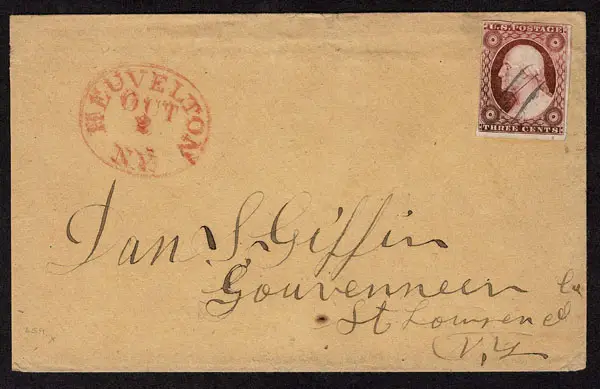 HEUVELTON
OCT
N.Y.
U.S. POSTAGE
THREE CENTS
Dan S. Giffin
Gouverneer
St Lawrence Co
N.Y